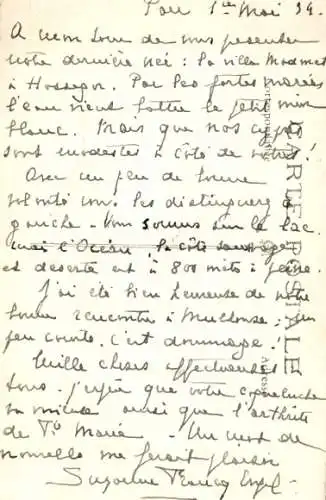 Pau 1er Mai 34.
A mon tour de vous présenter
notre dernière née : la villa
à Hossegor. Par les fortes marées
l'eau vient battre le petit mur
blanc. Mais que nos
sont modestes à côté de vôtres!
Avec un peu de bonne
volonté vous les distinguerez à
gauche - Nous sommes sur le lac
l'Océan, la côte sauvage
et déserte est à 800 mts à peine.
J'ai été bien heureuse de notre
bonne rencontre à Mulhouse, un
peu courte. C'est dommage!
Mille choses affectueuses à
tous. J'espère que votre coqueluche
va mieux ainsi que l'arthrite
de Marie - Un mot de
nouvelles me ferait plaisir
Suzanne
CARTE POSTALE
Correspondance
Adresse